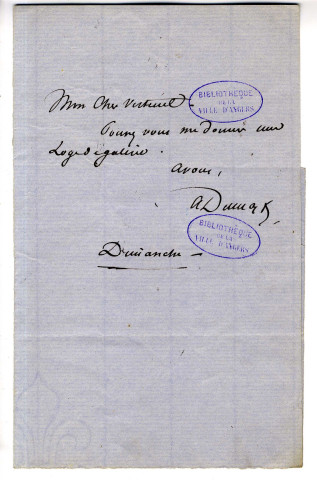 Mon Cher Verteuil -
BIBLIOTHÈQUE
DE LA
VILLE D'ANGERS
Pouvez vous me donner une
Loge de galerie.
a vous,
ADumas
BIBLIOTHÈQUE
DE LA
VILLE D'ANGERS
Dimanche -